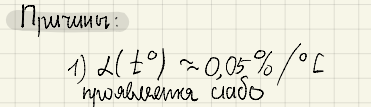 Причины:
1) α(t°) ≈ 0,05%/°C
проявляется слабо